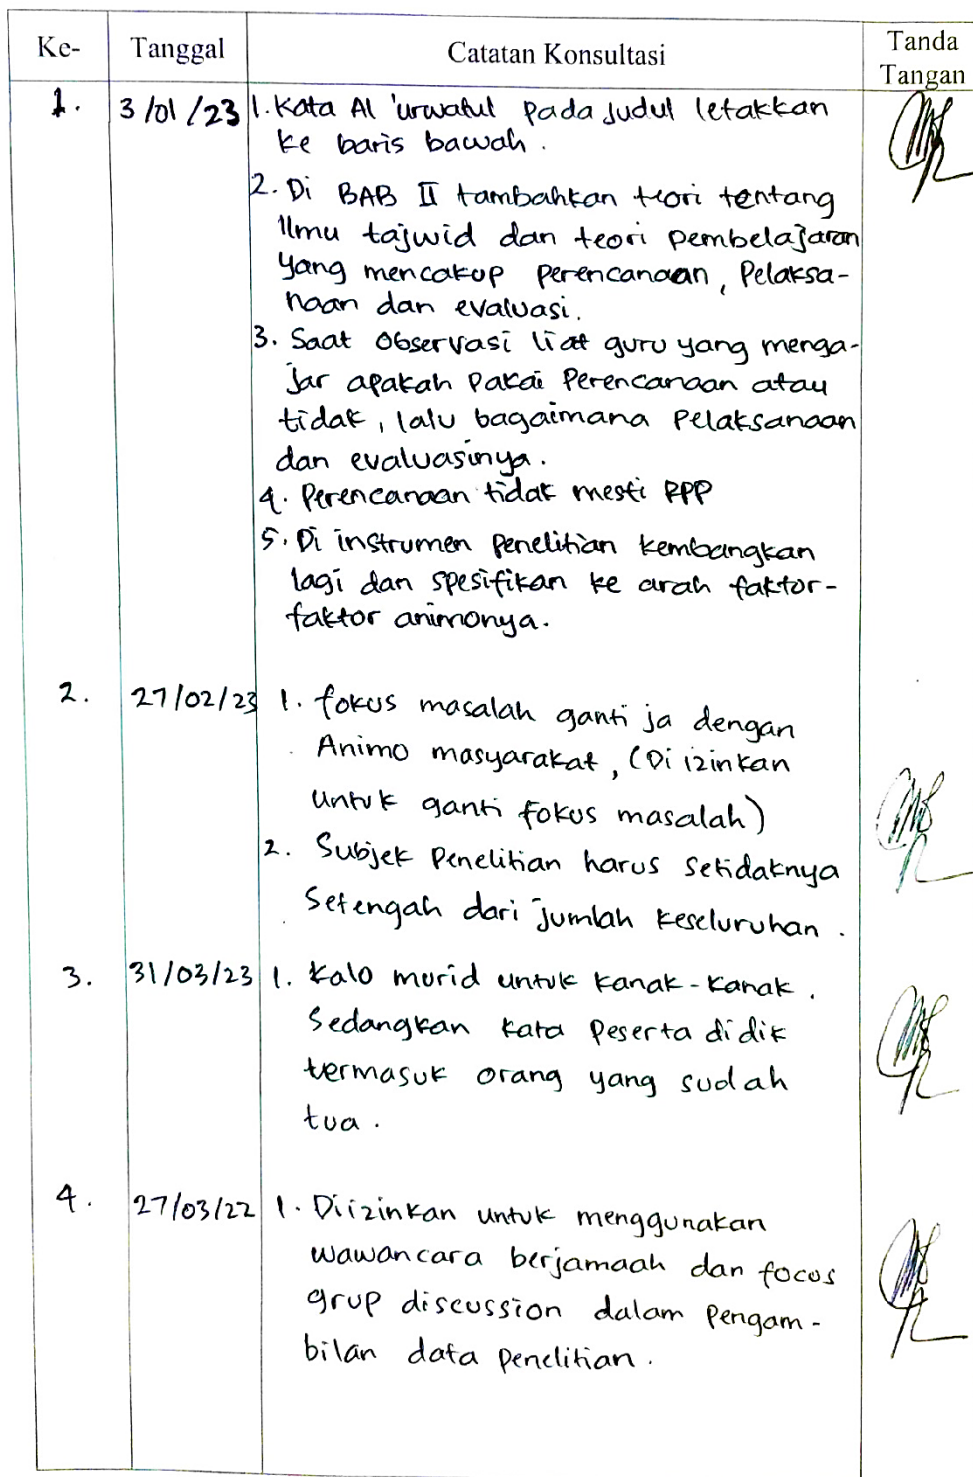 Ke- Tanggal Catatan Konsultasi Tanda Tangan
1. 3/01/23 1. Kata Al 'urwatul pada Judul letakkan
ke baris bawah.
2. Di BAB II tambahkan teori tentang
Ilmu tajwid dan teori pembelajaran
yang mencakup perencanaan, Pelaksa-
naan dan evaluasi.
3. Saat observasi liat guru yang menga-
jar apakah pakai Perencanaan atau
tidak, lalu bagaimana Pelaksanaan
dan evaluasinya.
4. Perencanaan tidak mesti RPP
5. Di instrumen Penelitian kembangkan
lagi dan spesifikan ke arah faktor-
faktor animonya.
2. 27/02/23 1. fokus masalah ganti ja dengan
Animo masyarakat, (Di izinkan
untuk ganti fokus masalah)
2. Subjek Penelitian harus setidaknya
Setengah dari jumlah keseluruhan.
3. 31/03/23 1. Kalo murid untuk kanak-kanak.
Sedangkan kata Peserta didik
termasuk orang yang sudah
tua.
4. 27/03/22 1. Diizinkan untuk menggunakan
wawancara berjamaah dan focus
grup discussion dalam Pengam-
bilan data Penelitian.